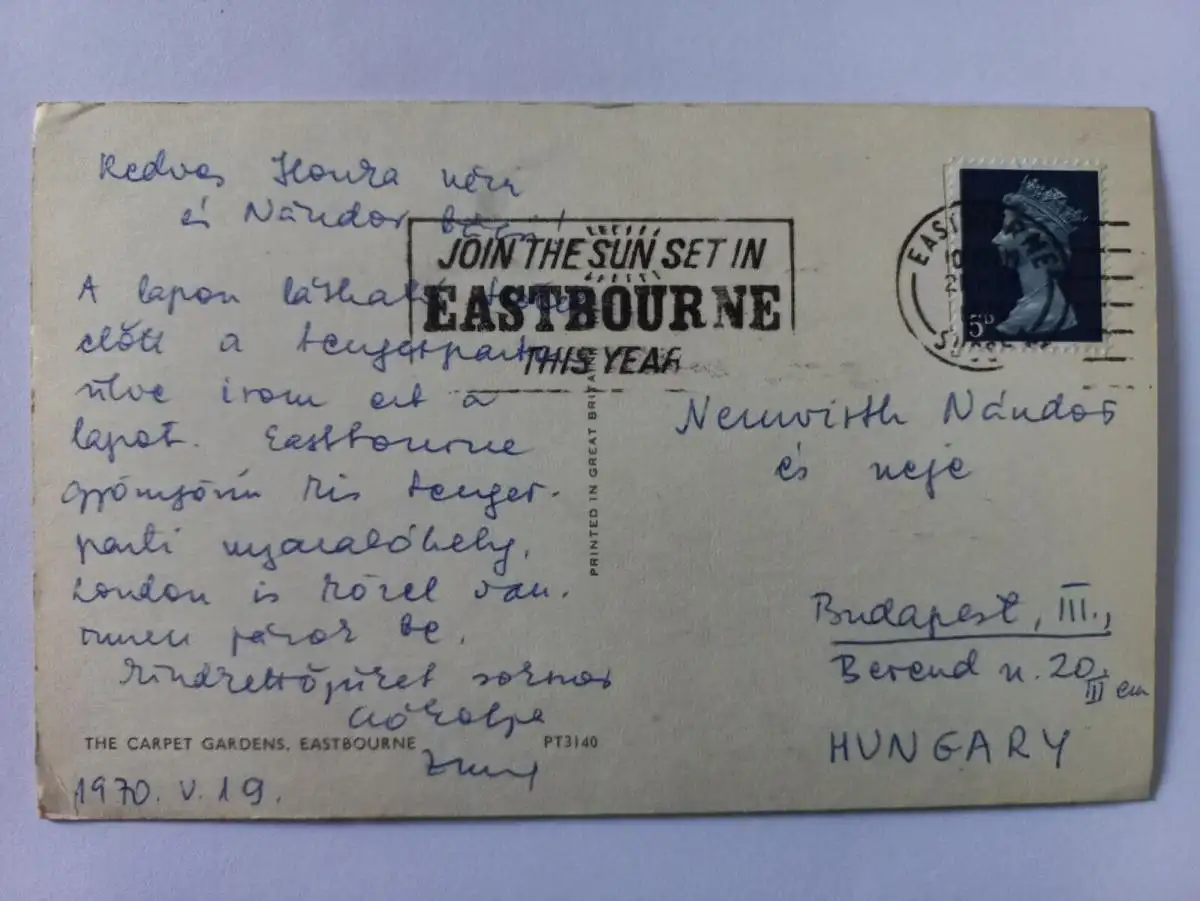 Kedves Ilonka néni
és Nándor bácsi!
A lapon látható
előtt a tengerparton
ülve írom ezt a
lapot. Eastbourne
gyönyörű kis tenger-
parti nyaralóhely,
London is közel van.
innen járok be.
Mindkettőjüket sokszor
csókolja
1970. V. 19.
THE CARPET GARDENS, EASTBOURNE
PT3140
PRINTED IN GREAT BRITAIN
JOIN THE SUN SET IN
EASTBOURNE
THIS YEAR
EASTBOURNE
SUSSEX
5D
Neuwirth Nándor
és neje
Budapest, III.,
Berend u. 20.
III em
HUNGARY